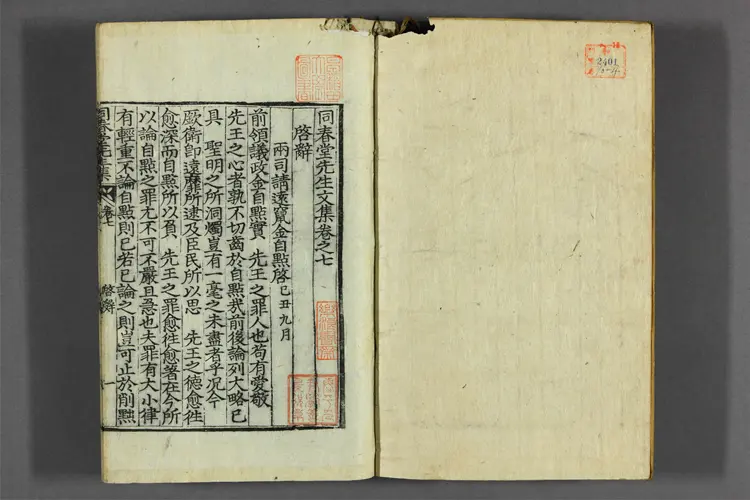 同春堂先生文集卷之七
啓辭
兩司請遠竄金自點啓己丑九月
前領議政金自點實 先王之罪人也苟有愛敬
先王之心者孰不切齒於自點哉前後論列大略已
具 聖明之所洞燭豈有一毫之未盡者乎况今
厥衛卽遠靡所逮及臣民所以思 先王之德愈往
愈深而自點所以負 先王之罪愈往愈著在今所
以論自點之罪尤不可不嚴且急也夫罪有大小律
有輕重不論自點則已若已論之則豈可止於削黜
卷七
啓辭
一
2401